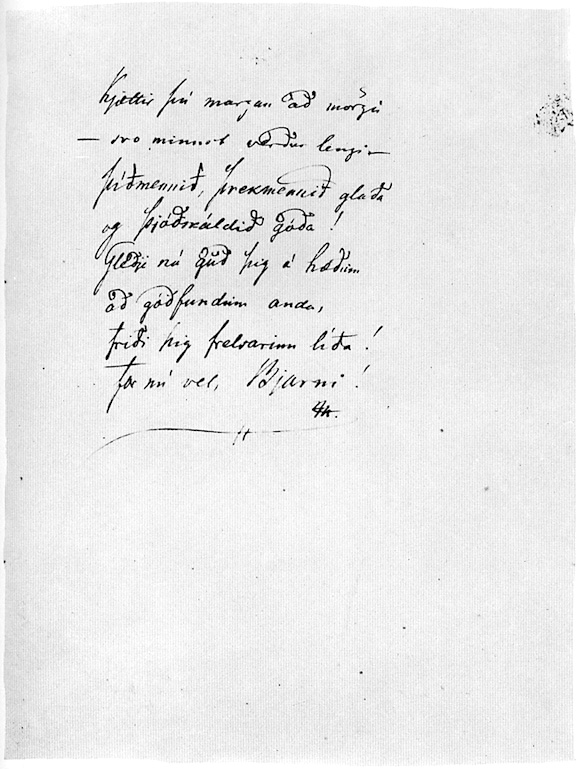 Kjættir þú margan að mörgu
— svo minnst verður lengi —
þíðmennið, þrekmennið glaða
og þjóðskáldið góða!
Gleðji nú guð þig á hæðum
að góðfundum anda,
friði þig frelsarinn líða!
far nú vel, Bjarni!